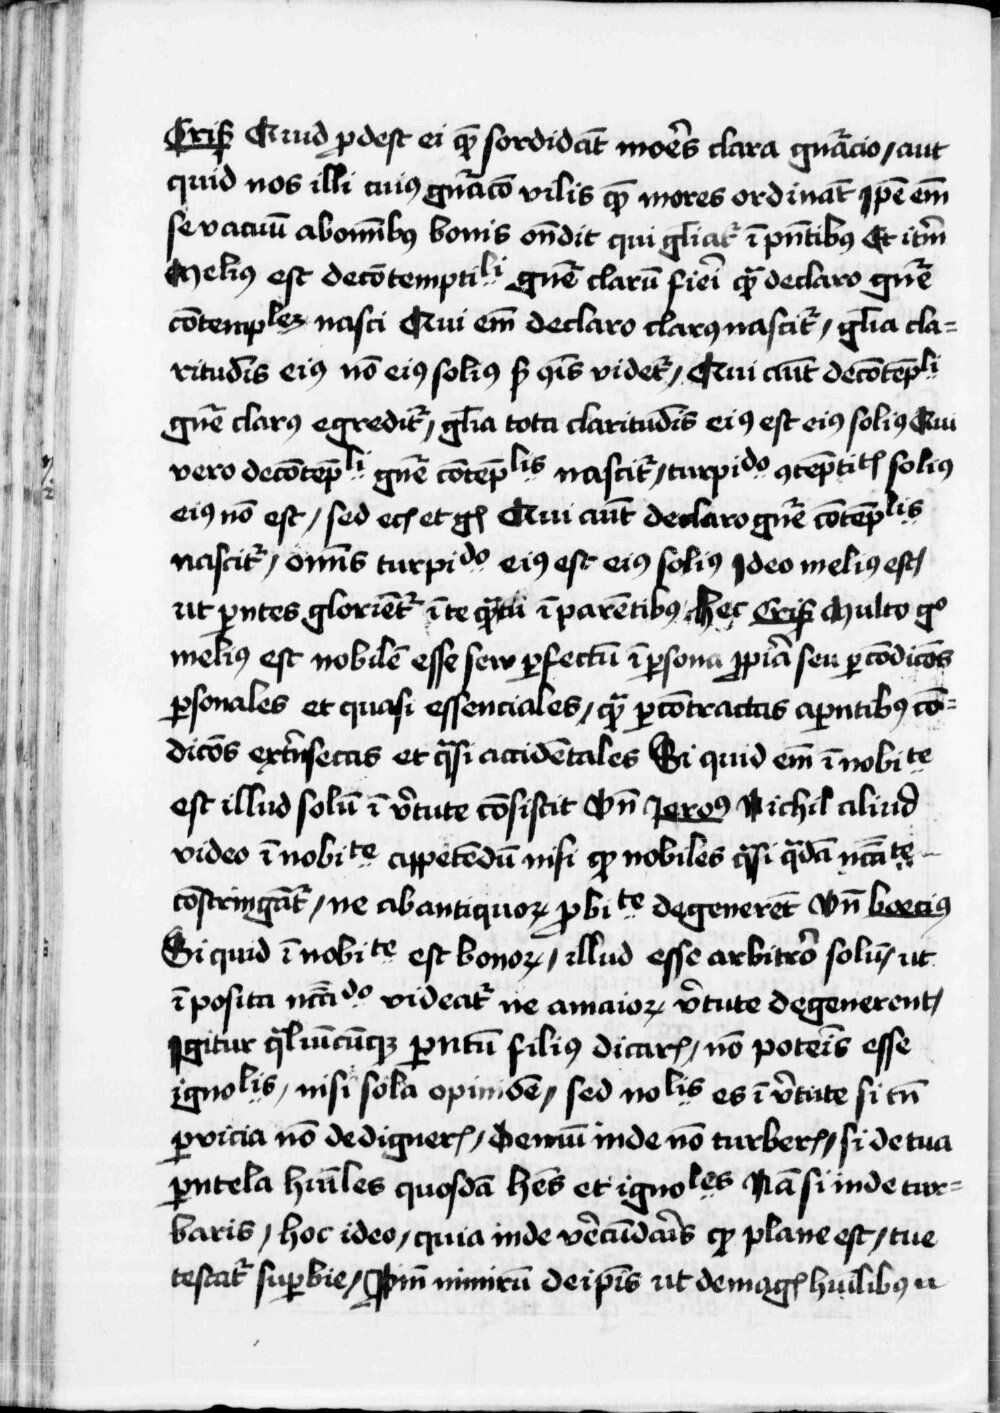 Cris Quid pdest ei qͫ sordidāt moēs clara gnāacio / aut
quid nos illi cuiꝰ gnāco͞ vilis qͫ mores ordināt Ipe em̄
se vacuū abomībꝰ bonis on̄dit qui gliat᷑ ī pn̄tibꝰ Et itm̄
Meliꝰ est deco͞temptili gnē clarū fieri qͣ declaro gnē
co͞templez nasci Qui em̄ declaro clarꝰ nascit᷑ / glīa cla=
ritudīs eiꝰ nō eiꝰ soliꝰ videt᷑ / Qui aūt deco͞tēpli
gnē clarꝰ egredit᷑ / glīa tota claritudīs eiꝰ est eiꝰ soliꝰ Qui
vero deco͞tēpli gnē co͞tēplis nascit᷑ / turpido ꝯtēptiꝭ soliꝰ
eiꝰ nō est / sed eꝭ et gꝭ Qui aūt declaro gnē co͞tēplis
nascit᷑ / omīs turpido eiꝰ est eiꝰ soliꝰ Ideo meliꝰ est /
ut pn̄tes gloriēt᷑ ī te qͣtū ī parētibꝰ hec Cris Multo gͦ
meliꝰ est nobilē esse sew ꝑfectū ī ꝑsona ꝓpīa seu ꝑ co͞dico͞s
ꝑsonales et quasi essenciales / qͣ ꝑ co͞tractas apn̄tibꝰ co͞=
dico͞s ext̄nsecas et qͣsi accidētales Si quid em̄ ī nobite
est illud solū ī v̄tute co͞sistit Vn̄ Jeroꝰ Nichil aliud
video ī nobite appetēdū nisi qͫ nobiles qͣsi qͣdā nccāte
co͞stringāt᷑ / ne abantiquoꝝ ꝓbite degenerēt Vn̄ boeciꝰ
Si quid ī nobite est bonoꝝ / illud esse arbitrōr solū / ut
īposita nccādo videat᷑ ne amaioꝝ v̄tute degenerent /
Igitur qͣliūcūqꝫ pn̄tū filiꝰ dicarꝭ / nō poteris esse
ignolis / nisi sola opinōe / sed nolis es ī v̄tute si tn̄
ꝑ vicia nō dedignerꝭ / Demū inde nō turberꝭ / si de tua
pn̄tela hūiles quosdā hēs et ignoles Nā si inde tur=
baris / hoc ideo / quia inde vēcūdaris qͫ plane est / tue
testat᷑ suꝑbie / nimirū deipīs ut demagꝭ hūilibꝰ